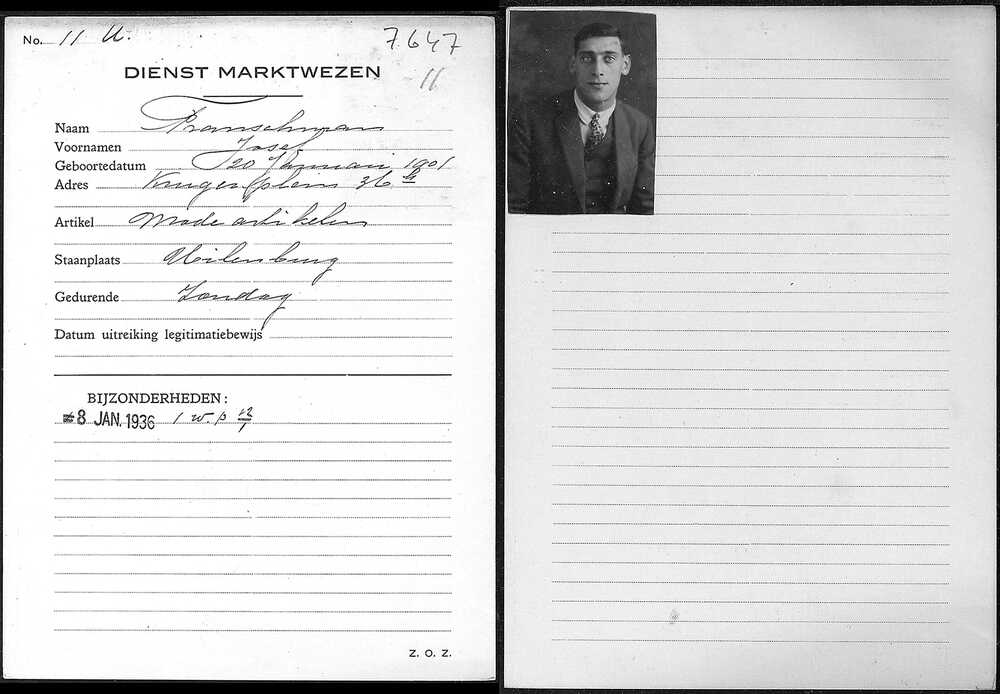 No. 11 U.
7647
11
DIENST MARKTWEZEN
Naam Franschman
Voornamen Josef
Geboortedatum 20 Januari 1901
Adres Krugerplein 36 II
Artikel Mode artikelen
Staanplaats Uilenburg
Gedurende Zondag
Datum uitreiking legitimatiebewijs
BIJZONDERHEDEN:
8 JAN. 1936 1 w. p
Z. O. Z.